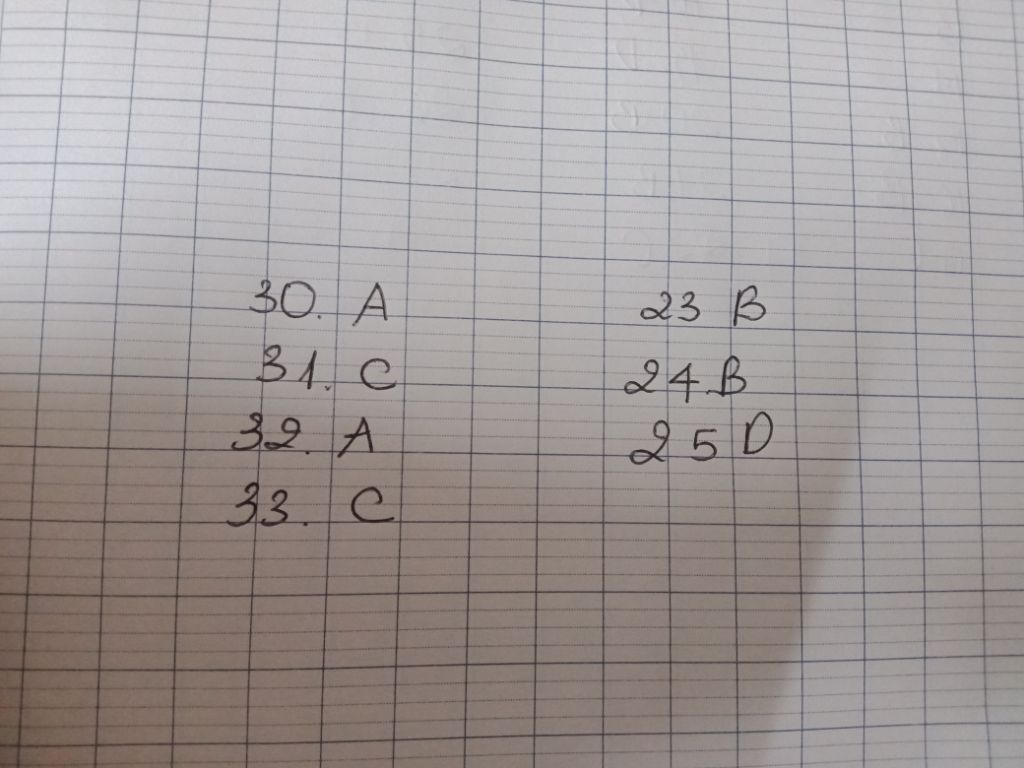 30. A
31. C
32. A
33. C
23 B
24 B
25 D